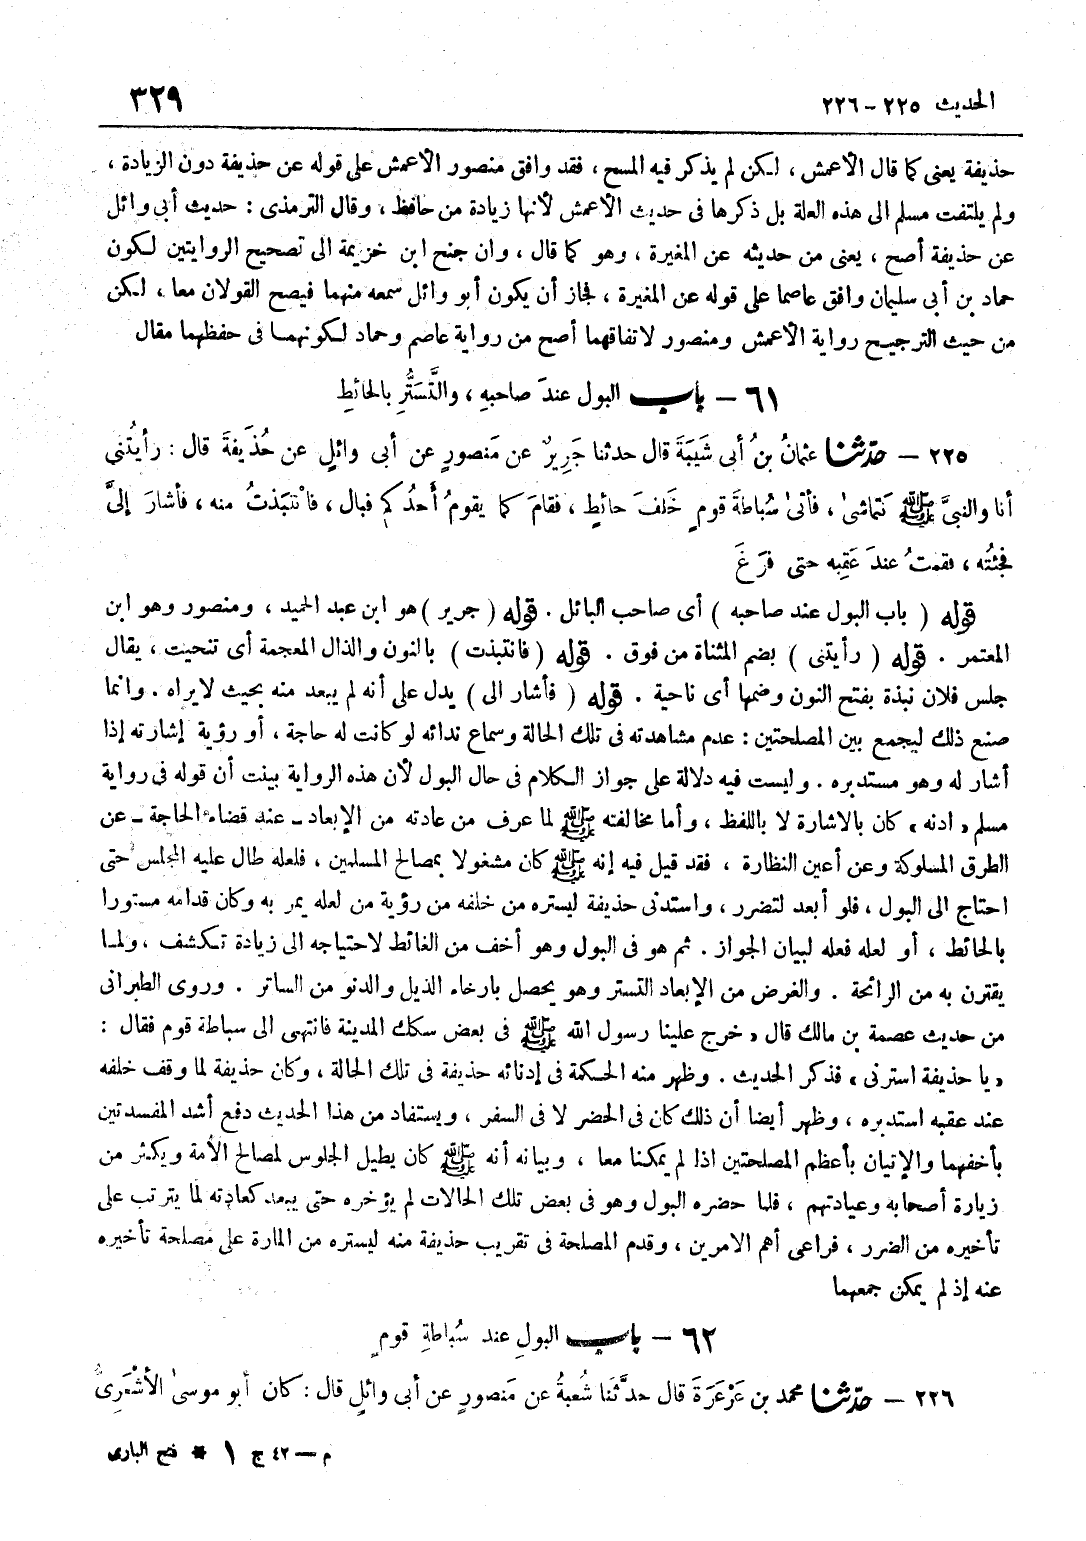 الحديث ٢٢٥ - ٢٢٦ ٣٢٩
حذيفة يعنى كما قال الأعمش ، لكن لم يذكر فيه المسح ، فقد وافق منصور الأعمش على قوله عن حذيفة دون الزيادة ،
ولم يلتفت مسلم الى هذه العلة بل ذكرها فى حديث الأعمش لأنها زيادة من حافظ ، وقال الترمذى : حديث أبى وائل
عن حذيفة أصح ، يعنى من حديثه عن المغيرة ، وهو كما قال ، وان جنح ابن خزيمة الى تصحيح الروايتين لكون
حماد بن أبى سليمان وافق عاصما على قوله عن المغيرة ، فجاز أن يكون أبو وائل سمعه منهما فيصح القولان معا ، لكن
من حيث الترجيح رواية الأعمش ومنصور لاتفاقهما أصح من رواية عاصم وحماد لكونهما فى حفظهما مقال
٦١ - باب البول عندَ صاحبهِ ، والتَّسَتُّرِ بالحائطِ
٢٢٥ - حدّثنا عثمانُ بنُ أبى شَيبَةَ قال حدثنا جَريرٌ عن مَنصورٍ عن أبى وائلٍ عن حُذَيفةَ قال : رأيتُني
أنا والنبىَّ ﷺ نَتماشىٰ ، فأتىٰ سُباطةَ قومٍ خَلفَ حائطٍ ، فقامَ كما يقومُ أحدُكم فبال ، فانْتبَذتُ منه ، فأشارَ إلىَّ
فجئتُه ، فقمتُ عندَ عَقِبه حتى فرَغَ
قوله ( باب البول عند صاحبه ) أى صاحب البائل . قوله ( جرير ) هو ابن عبد الحميد ، ومنصور وهو ابن
المعتمر . قوله ( رأيتنى ) بضم المثناة من فوق . قوله ( فانتبذت ) بالنون والذال المعجمة أى تنحيت ، يقال
جلس فلان نبذة بفتح النون وضمها أى ناحية . قوله ( فأشار الى ) يدل على أنه لم يبعد منه بحيث لا يراه . وانما
صنع ذلك ليجمع بين المصلحتين : عدم مشاهدته فى تلك الحالة وسماع ندائه لو كانت له حاجة ، أو رؤية إشارته إذا
أشار له وهو مستدبره . وليست فيه دلالة على جواز الكلام فى حال البول لأن هذه الرواية بينت أن قوله فى رواية
مسلم « ادنه » كان بالاشارة لا باللفظ ، وأما مخالفته ﷺ لما عرف من عادته من الإبعاد ـ عند قضاء الحاجة ـ عن
الطرق المسلوكة وعن أعين النظارة ، فقد قيل فيه إنه ﷺ كان مشغولا بمصالح المسلمين ، فلعله طال عليه المجلس حتى
احتاج الى البول ، فلو أبعد لتضرر ، واستدنى حذيفة ليستره من خلفه من رؤية من لعله يمر به وكان قدامه مستورا
بالحائط ، أو لعله فعله لبيان الجواز . ثم هو فى البول وهو أخف من الغائط لاحتياجه الى زيادة تكشف ، ولما
يقترن به من الرائحة . والغرض من الإبعاد التستر وهو يحصل بارخاء الذيل والدنو من الساتر . وروى الطبرانى
من حديث عصمة بن مالك قال « خرج علينا رسول الله ﷺ فى بعض سكك المدينة فانتهى الى سباطة قوم فقال :
« يا حذيفة استرنى » فذكر الحديث . وظهر منه الحكمة فى إدنائه حذيفة فى تلك الحالة ، وكان حذيفة لما وقف خلفه
عند عقبه استدبره ، وظهر أيضا أن ذلك كان فى الحضر لا فى السفر ، ويستفاد من هذا الحديث دفع أشد المفسدتين
بأخفهما والإتيان بأعظم المصلحتين اذا لم يمكنا معا ، وبيانه أنه ﷺ كان يطيل الجلوس لمصالح الأمة ويكثر من
زيارة أصحابه وعيادتهم ، فلما حضره البول وهو فى بعض تلك الحالات لم يؤخره حتى يبعد كعادته لما يترتب على
تأخيره من الضرر ، فراعى أهم الامرين ، وقدم المصلحة فى تقريب حذيفة منه ليستره من المارة على مصلحة تأخيره
عنه إذ لم يمكن جمعهما
٦٢ - باب البولِ عند سُباطةِ قومٍ
٢٢٦ - حدّثنا محمد بن عَرْعَرَةَ قال حدَّثَنا شُعبةُ عن مَنصورٍ عن أبى وائلٍ قال : كان أبو موسىٰ الأشْعَرىُّ
م - ٤٢ ج ١ * فتح البارى